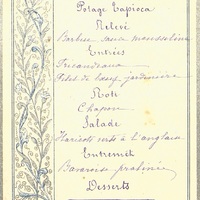 Potage Tapioca
Relevé
Barbue sauce mousseline
Entrées
Fricandeau
Filet de bœuf jardinière
Roti
Chapon
Salade
Haricots verts à l'anglaise
Entremet
Bavaroise pralinée
Desserts